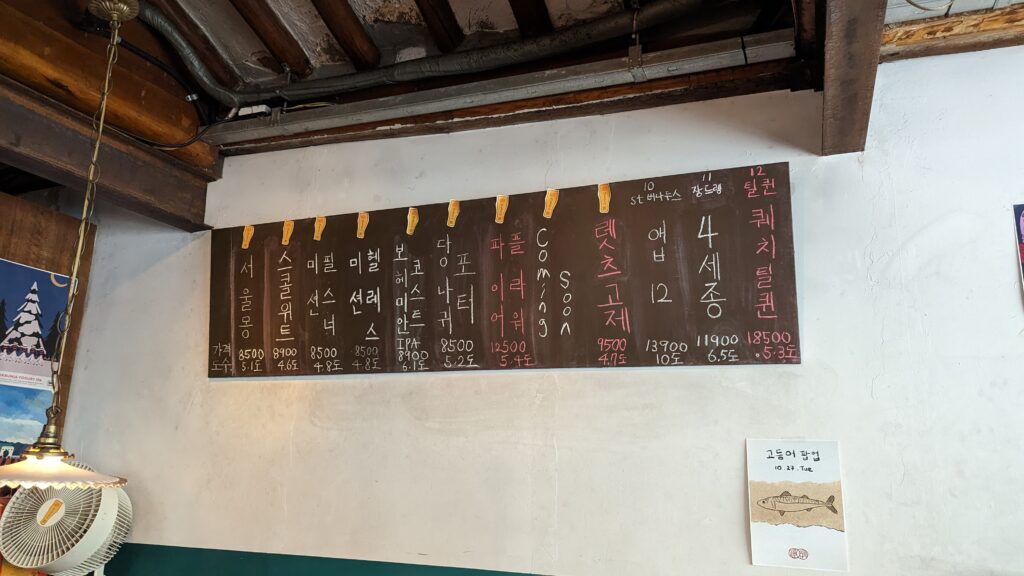 가격
도수
서울몽
8500
5.1도
스쿨위트
8900
4.6도
미션
필스너
8500
4.8도
미션
헬레스
8500
4.8도
보헤미안
코스트
IPA
8900
6.1도
당나귀
포터
8500
5.2도
파이어
플라워
12500
5.4도
Coming
Soon
렛츠고제
9500
4.7도
10
St 버나두스
앱
12
13900
10도
11
장드렝
4세종
11900
6.5도
12
틸퀸
쿼치틸퀸
18500
5.3도
고등어 팝업
10.27.Tue